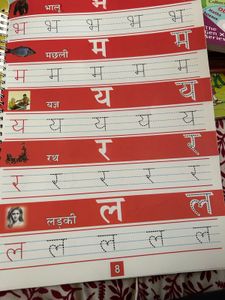 भालू भ भ
भ भ भ भ भ
मछली म म
म म म म म
यज्ञ य य
य य य य य
रथ र र
र र र र र
लड़की ल ल
ल ल ल ल ल
8